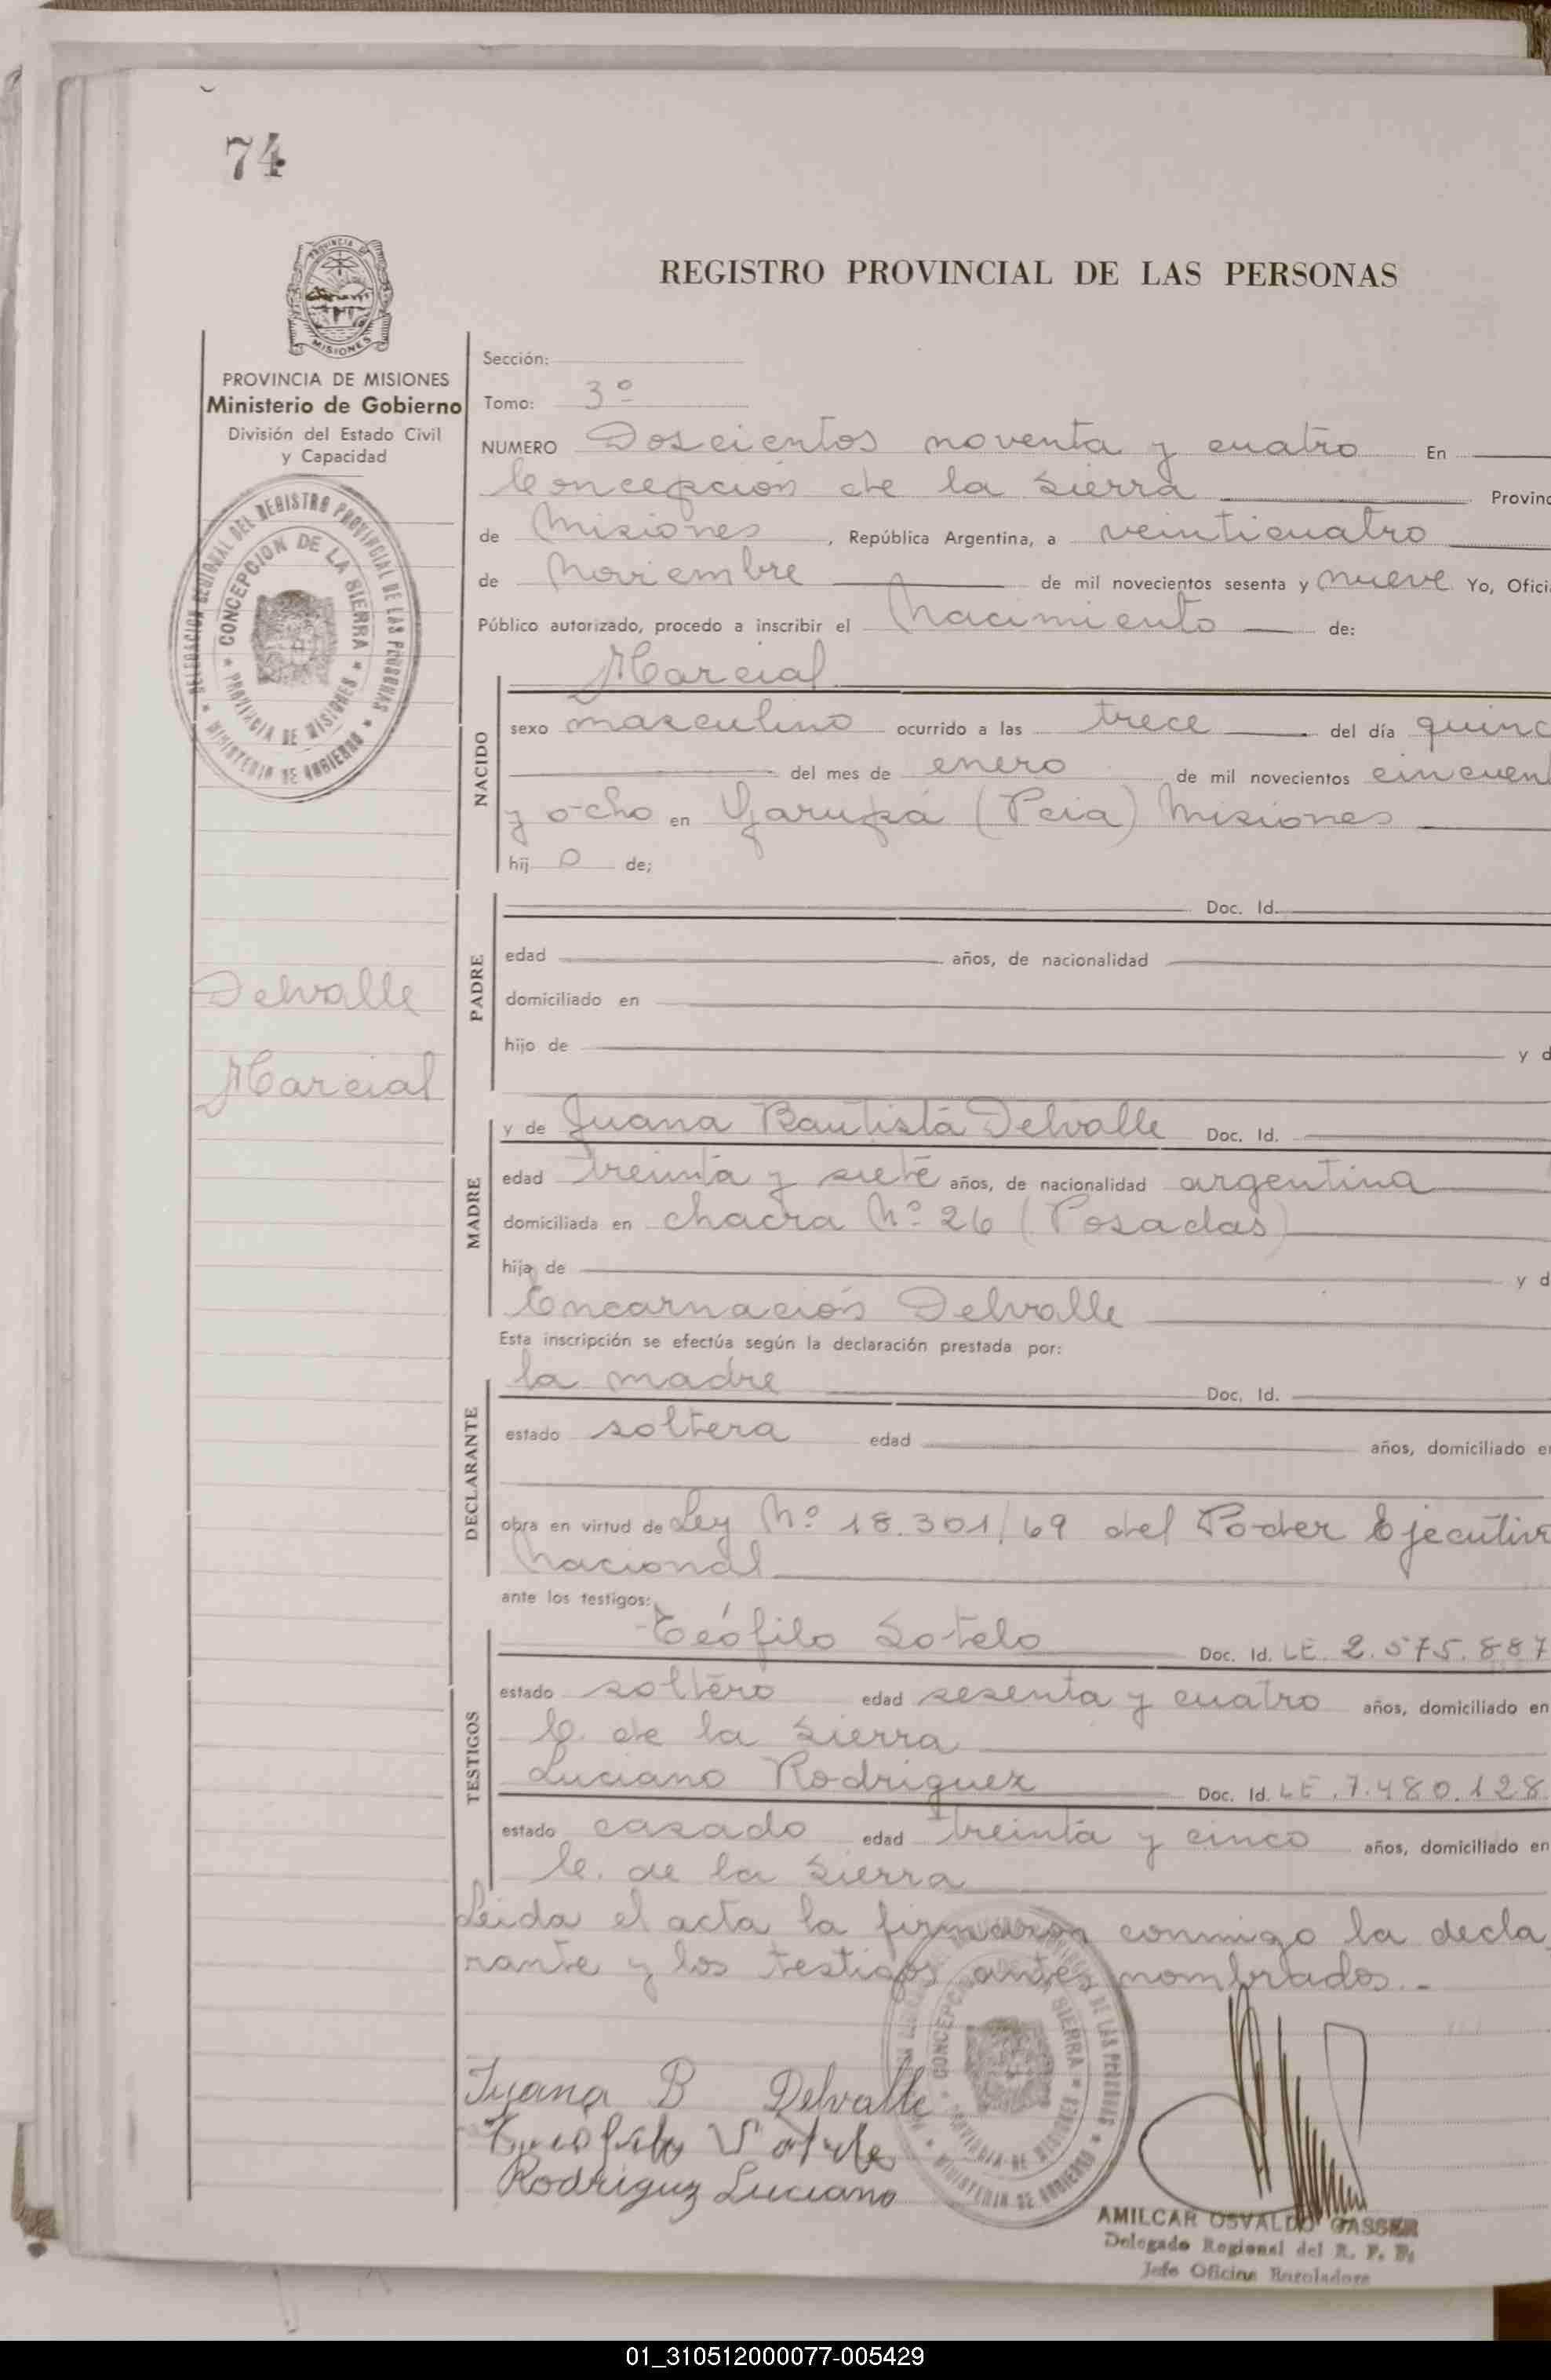 74
REGISTRO PROVINCIAL DE LAS PERSONAS
PROVINCIA DE MISIONES
Ministerio de Gobierno
División del Estado Civil
y Capacidad
DELEGACION REGIONAL DEL REGISTRO PROVINCIAL DE LAS PERSONAS
CONCEPCION DE LA SIERRA
PROVINCIA DE MISIONES
MINISTERIO DE GOBIERNO
MISIONES
Delvalle
Marcial
Sección:
Tomo: 3º
NUMERO Doscientos noventa y cuatro En
Concepción de la Sierra Provinc
de Misiones, República Argentina, a veinticuatro
de Noviembre de mil novecientos sesenta y nueve Yo, Ofici
Público autorizado, procedo a inscribir el Nacimiento de:
NACIDO
Marcial
sexo masculino ocurrido a las trece del día quinc
del mes de enero de mil novecientos cincuen
y ocho en Garupá (Pcia) Misiones
hij o de;
PADRE
Doc. Id.
edad años, de nacionalidad
domiciliado en
hijo de y d
MADRE
y de Juana Bautista Delvalle Doc. Id.
edad treinta y siete años, de nacionalidad argentina
domiciliada en chacra Nº 26 (Posadas)
hija de y d
Encarnación Delvalle
Esta inscripción se efectúa según la declaración prestada por:
DECLARANTE
la madre Doc. Id.
estado soltera edad años, domiciliado e
obra en virtud de Ley Nº 18.301/69 del Poder Ejecutiv
Nacional
ante los testigos:
TESTIGOS
Teófilo Sotelo Doc. Id. LE. 2.575.887
estado soltero edad sesenta y cuatro años, domiciliado en
C. de la Sierra
Luciano Rodriguez Doc. Id. LE. 7.480.128
estado casado edad treinta y cinco años, domiciliado en
C. de la Sierra
Leida el acta la firmaron conmigo la decla
rante y los testigos antes nombrados.-
Juana B Delvalle
Rodriguz Luciano
CONCEPCION DE LA SIERRA
PROVINCIA DE MISIONES
MINISTERIO DE GOBIERNO
AMILCAR OSVALDO GASSER
Delegado Regional del R. P. P.
Jefe Oficina Enroladora
01_310512000077-005429